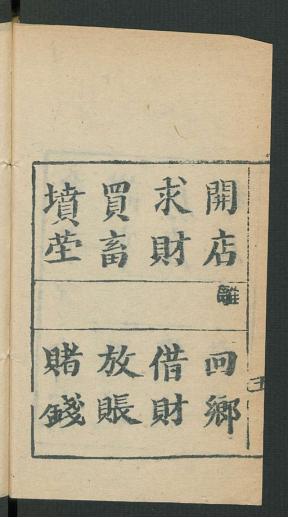 開店
求財
買畜
墳茔
離
回鄉
借財
放賬
賭錢